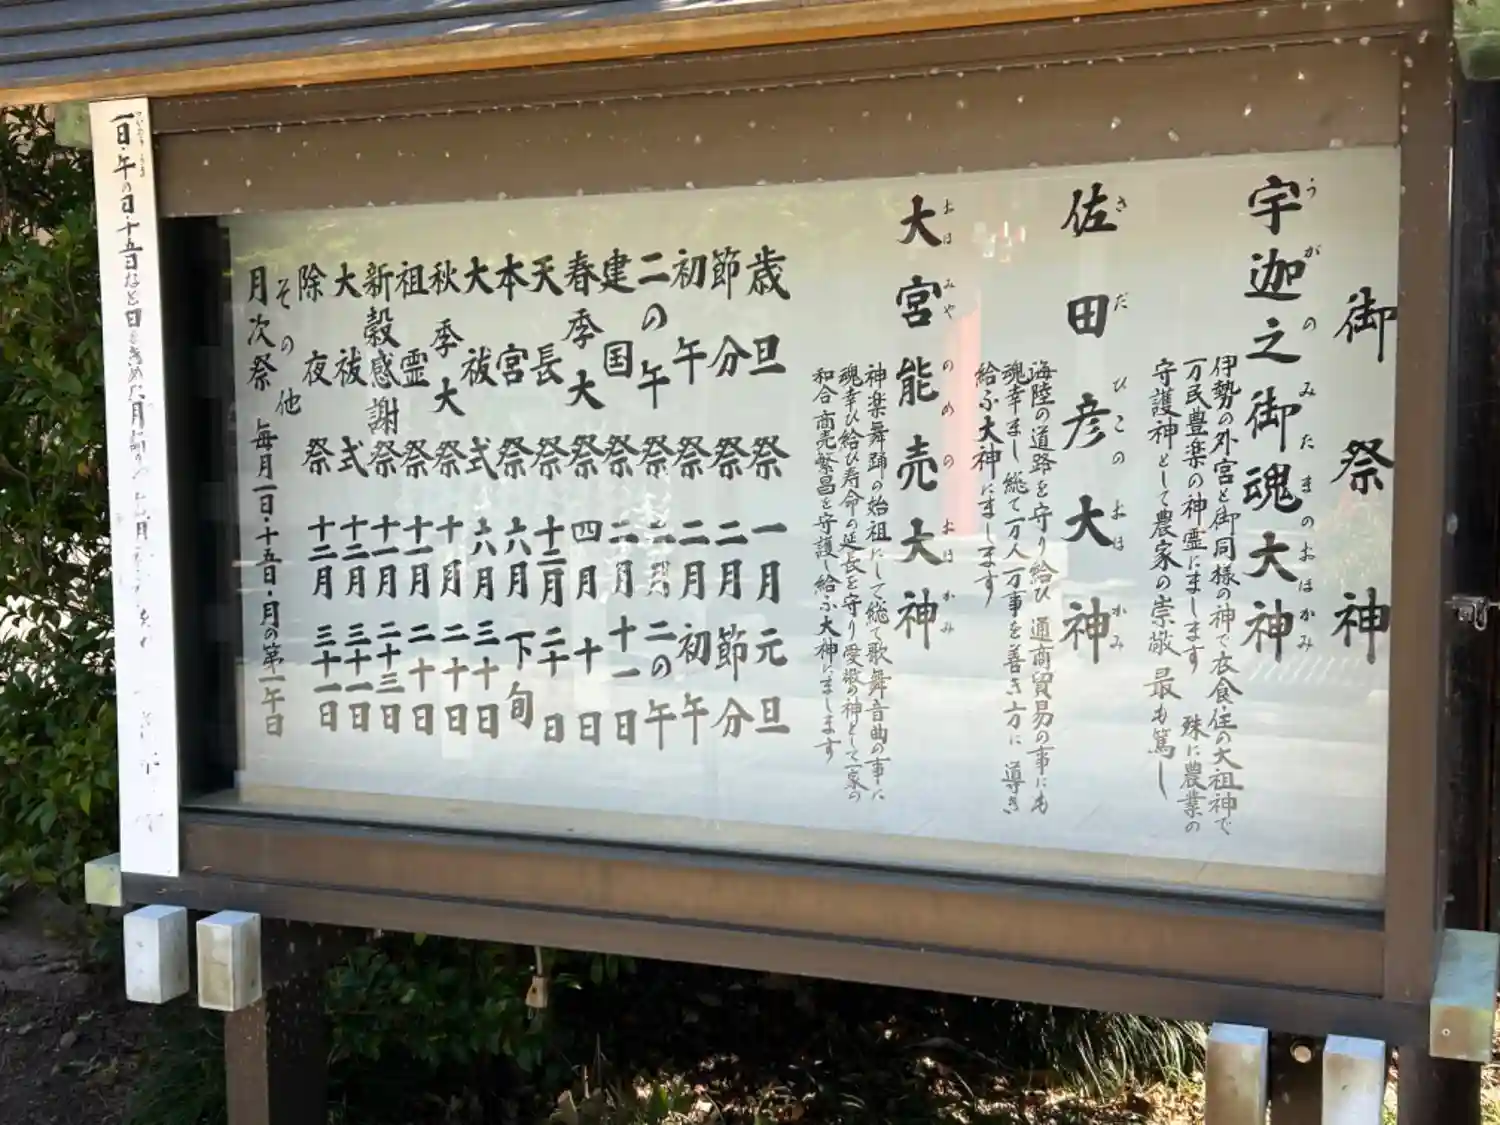 御祭神
宇迦之御魂大神
うがのみたまのおほかみ
伊勢の外宮と御同様の神で衣食住の大祖神で
万民豊楽の神霊にまします 殊に農業の
守護神として農家の崇敬最も篤し
佐田彦大神
さだひこのおほかみ
海陸の道路を守り給ひ 通商貿易の事にも
魂幸まし総て万人万事を善き方に導き
給ふ大神にまします
大宮能売大神
おほみやのめのおほかみ
神楽舞踊の始祖にして総て歌舞音曲の事に
魂幸ひ給ひ寿命の延長を守り愛敬の神として一家の
和合商売繁昌を守護し給ふ大神にまします
歳旦祭 一月元旦
節分祭 二月節分
初午祭 二月初午
二の午祭 二月二の午
建国祭 二月十一日
春季大祭 四月十日
天長祭 十二月二十日
本宮祭 六月下旬
大祓式 六月三十日
秋季大祭 十月二十日
祖霊祭 十一月二十日
新穀感謝祭 十一月二十三日
大祓式 十二月三十一日
除夜祭 十二月三十一日
その他
月次祭 毎月一日・十五日・月の第一午日
一日・午の日・十五日など日をきめた月